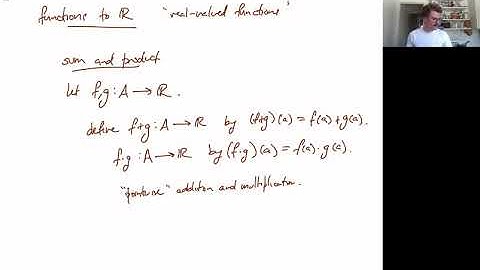 functions to ℝ "real-valued functions"
sum and product
let f,g : A → ℝ.
define f+g : A → ℝ by (f+g)(a) = f(a)+g(a).
f·g : A → ℝ by (f·g)(a) = f(a)·g(a).
"pointwise" addition and multiplication.